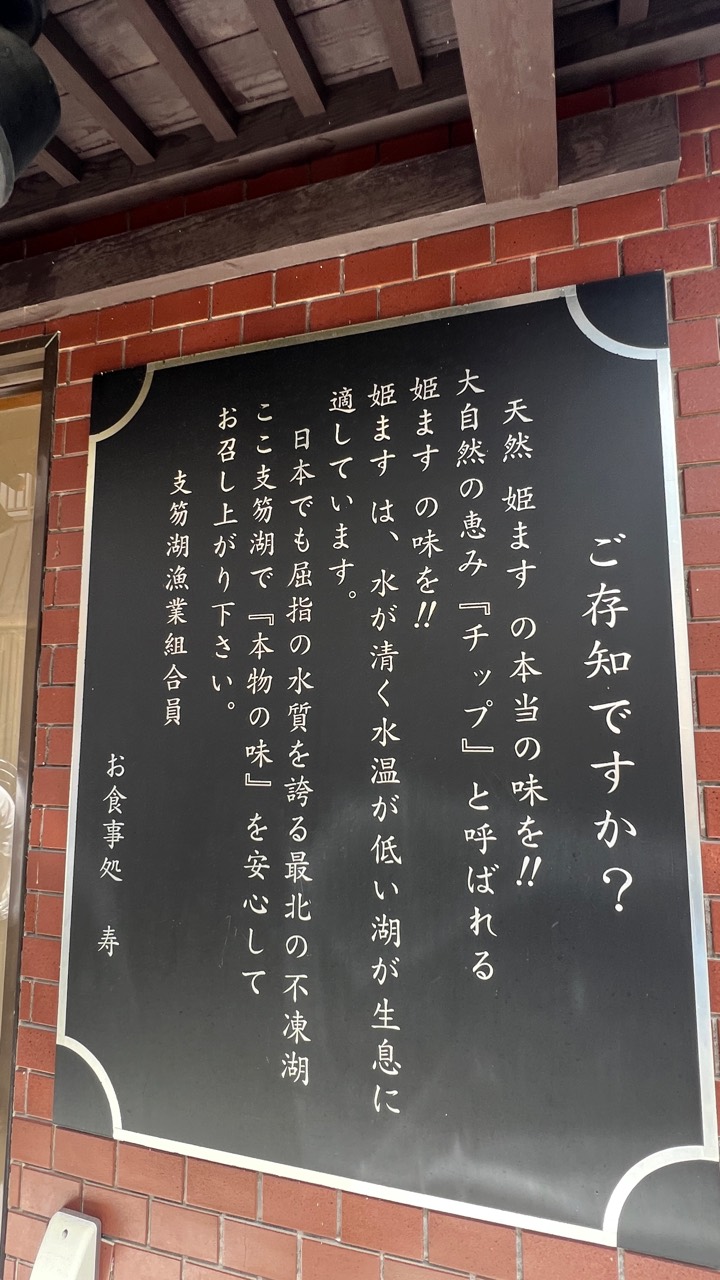 ご存知ですか？
天然 姫ます の本当の味を!!
大自然の恵み『チップ』と呼ばれる
姫ます の味を!!
姫ます は、水が清く水温が低い湖が生息に
適しています。
日本でも屈指の水質を誇る最北の不凍湖
ここ支笏湖で『本物の味』を安心して
お召し上がり下さい。
支笏湖漁業組合員
お食事処 寿